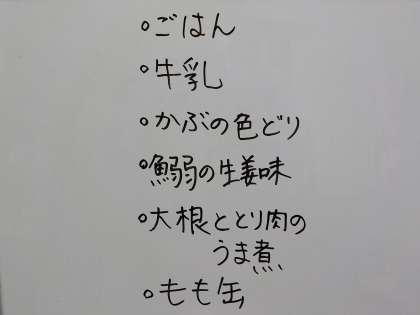 。ごはん
。牛乳
。かぶの色どり
。鰯の生姜味
。大根ととり肉の
うま煮
。もも缶